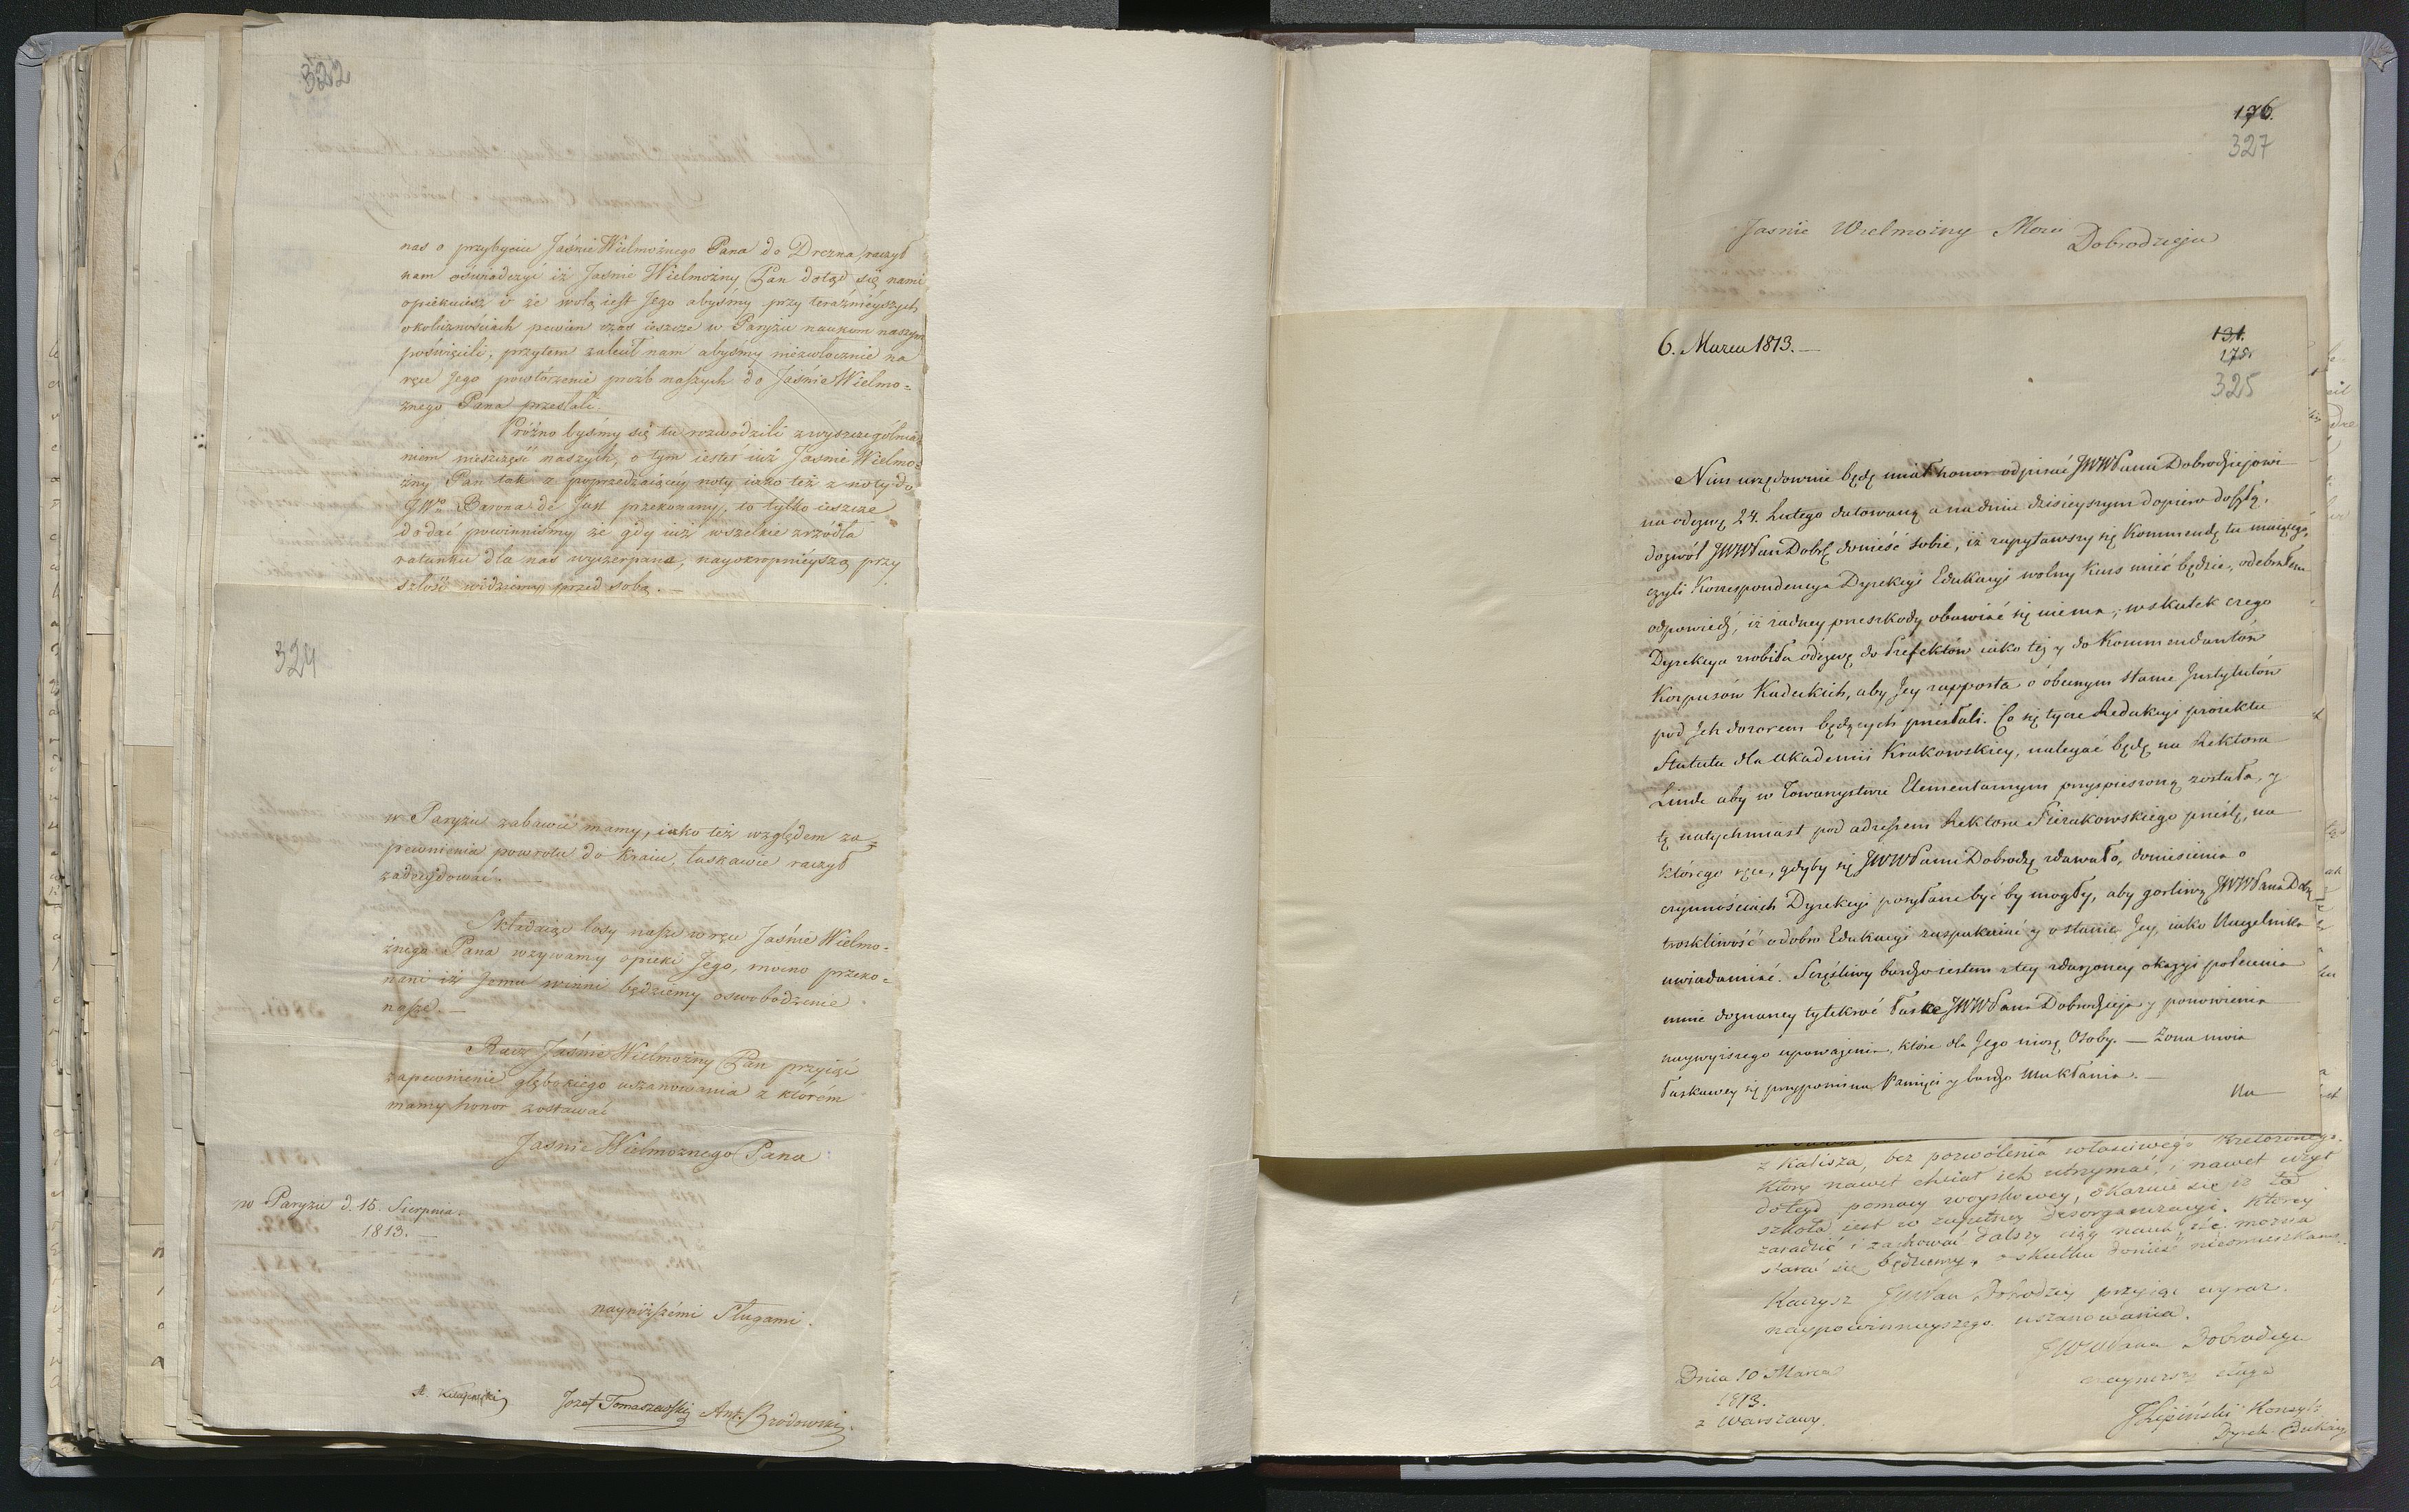 322
nas o przybyciu Jaśnie Wielmożnego Pana do Drezna, raczył
nam oświadczyć iż Jaśnie Wielmożny Pan dotąd się nami
opiekuiesz i że wolą iest Jego abyśmy przy teraźnieyszych
okolicznościach pewien czas ieszcze w Paryżu naukom naszym
poświęcili, przytem zalecił nam abyśmy niezwłocznie na
ręce Jego powtórzenie próźb naszych do Jaśnie Wielmo=
żnego Pana przesłali.
Próżno byśmy się tu rozwodzili z wyszczególnia=
niem nieszczęść naszych, o tym iesteś iuż Jaśnie Wielmo=
żny Pan tak z poprzedzaiącey noty iako też z noty do
JWo Barona de Just przekonany, to tylko ieszcze
dodać powinniśmy że gdy iuż wszelkie zrzódła
ratunku dla nas wyczerpane, nayokropnieyszą przy
szłość widziemy przed sobą. —
324
w Paryżu zabawić mamy, iako też względem za=
pewnienia powrotu do Kraiu, łaskawie raczył
zadecydować. —
Składaiąc losy nasze w ręce Jaśnie Wielmo-
żnego Pana wzywamy opieki Jego, mocno przeko=
nani iż Jemu winni będziemy oswobodzenie
nasze. —
Racz Jaśnie Wielmożny Pan przyiąć
zapewnienie głębokiego uszanowania z którém
mamy honor zostawać
Jaśnie Wielmożnego Pana
w Paryżu d. 15. Sierpnia.
1813. —
nayniższémi Sługami.
Jozef Tomaszewski Ant. Brodowski.
176.
327
Jasnie Wielmożny Mosci Dobrodzieju
6. Marca 1813. —
131.
175.
325
Nim urzędownie będę miał honor odpisać JWWPanu Dobrodziejowi
na odezwę 24. Lutego datowaną a na dniu dzisieyszym dopiero doszłą,
dozwól JWWPan Dobr donieść sobie, iż zapytawszy się Kommendę tu maiącego,
czyli Korrespondencya Dyrekcyi Edukacyi wolny Kurs mieć będzie, odebrałem
odpowiedź, iż żadney przeszkody obawiać się niema; wskutek czego
Dyrekcya zrobiła odezwę do Prefektów iako też y do Kommendantów
Korpusów Kadeckich, aby Jey rapporta o obecnym stanie Instytutów
pod Ich dozorem będących przesłali. Co się tycze Redakcyi proiektu
Statutu dla Akademii Krakowskiey, nalegać będę na Rektora
Linde aby w Towarzystwie Elementarnym przyspieszoną została, y
tę natychmiast pod adressem Rektora Sierakowskiego prześlę, na
którego ręce, gdyby się JWWPanu Dobrodz zdawało, doniesienia o
czynnościach Dyrekcyi posyłane być by mogły, aby gorliwą JWWPana Dobr
troskliwość o dobro Edukacyi zaspokaiać y o stanie Jey, iako Naczelnika
uwiadamiać. Szczęśliwy bardzo iestem z tey zdarzoney okazyi polecenia
mnie doznaney tylekroć łasce JWWPana Dobrodzieja y ponowienia
naywyższego upoważenia, które dla Jego niosę Osoby. — Żona moia
łaskawey się przypomina Pamięci y bardzo Mu Kłania. —
Na
z Kalisza, bez pozwolenia własciwego
który nawet chciał ich utrzymać, i nawet użył
dotąd pomocy woyskowey, okazuie się iż ta
szkoła iest w zupełney desorganizacyi. Którey
zaradzić i zachować dalszy ciąg nauk ile można
starać się będziemy, o skutku donieść nieomieszkam.
Raczysz JWWPan Dobrodziey przyiąć wyraz.
naypowinnieyszego uszanowania.
JWWPana Dobrodzieja
naynizszy sługa
JLipiński
Dyrek. Edukacy
Dnia 10 Marca
1813.
z Warszawy.